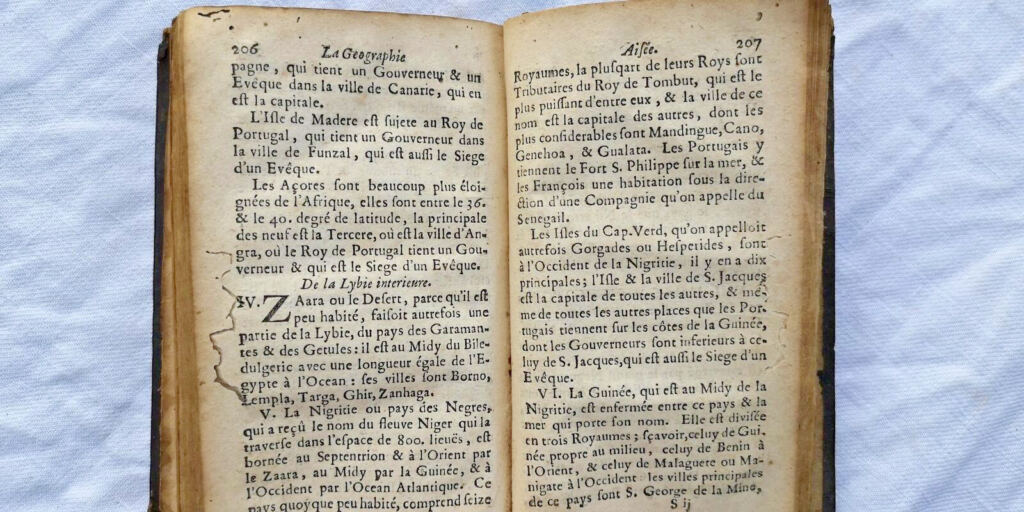 206 La Geographie
pagne, qui tient un Gouverneur & un
Evêque dans la ville de Canarie, qui en
est la capitale.
L'Isle de Madere est sujete au Roy de
Portugal, qui tient un Gouverneur dans
la ville de Funzal, qui est aussi le Siege
d'un Evêque.
Les Açores sont beaucoup plus éloi-
gnées de l'Afrique, elles sont entre le 36.
& le 40. degré de latitude, la principale
des neuf est la Tercere, où est la ville d'An-
gra, où le Roy de Portugal tient un Gou-
verneur & qui est le Siege d'un Evêque.
De la Lybie interieure.
IV. ZAara ou le Desert, parce qu'il est
peu habité, faisoit autrefois une
partie de la Lybie, du pays des Garaman-
tes & des Getules: il est au Midy du Bile-
dulgeric avec une longueur égale de l'E-
gypte à l'Ocean: ses villes sont Borno,
Lempla, Targa, Ghir, Zanhaga.
V. La Nigritie ou pays des Negres,
qui a reçu le nom du fleuve Niger qui la
traverse dans l'espace de 800. lieuës, est
bornée au Septentrion & à l'Orient par
le Zaara, au Midy par la Guinée, & à
l'Occident par l'Ocean Atlantique. Ce
pays quoyque peu habité, comprend seize
Aisée. 207
Royaumes, la plusqart de leurs Roys sont
Tributaires du Roy de Tombut, qui est le
plus puissant d'entre eux, & la ville de ce
nom est la capitale des autres, dont les
plus considerables sont Mandingue, Cano,
Genehoa, & Gualata. Les Portugais y
tiennent le Fort S. Philippe sur la mer, &
les François une habitation sous la dire-
ction d'une Compagnie qu'on appelle du
Senegail.
Les Isles du Cap-Verd, qu'on appelloit
autrefois Gorgades ou Hesperides, sont
à l'Occident de la Nigritie, il y en a dix
principales; l'Isle & la ville de S. Jacques
est la capitale de toutes les autres, & mê-
me de toutes les autres places que les Por-
tugais tiennent sur les côtes de la Guinée,
dont les Gouverneurs sont inferieurs à ce-
luy de S. Jacques, qui est aussi le Siege d'un
Evêque.
VI. La Guinée, qui est au Midy de la
Nigritie, est enfermée entre ce pays & la
mer qui porte son nom. Elle est divisée
en trois Royaumes; sçavoir, celuy de Gui-
née propre au milieu, celuy de Benin à
l'Orient, & celuy de Malaguete ou Ma-
nigate à l'Occident: les villes principales
de ce pays sont S. George de la Mine,
S ij